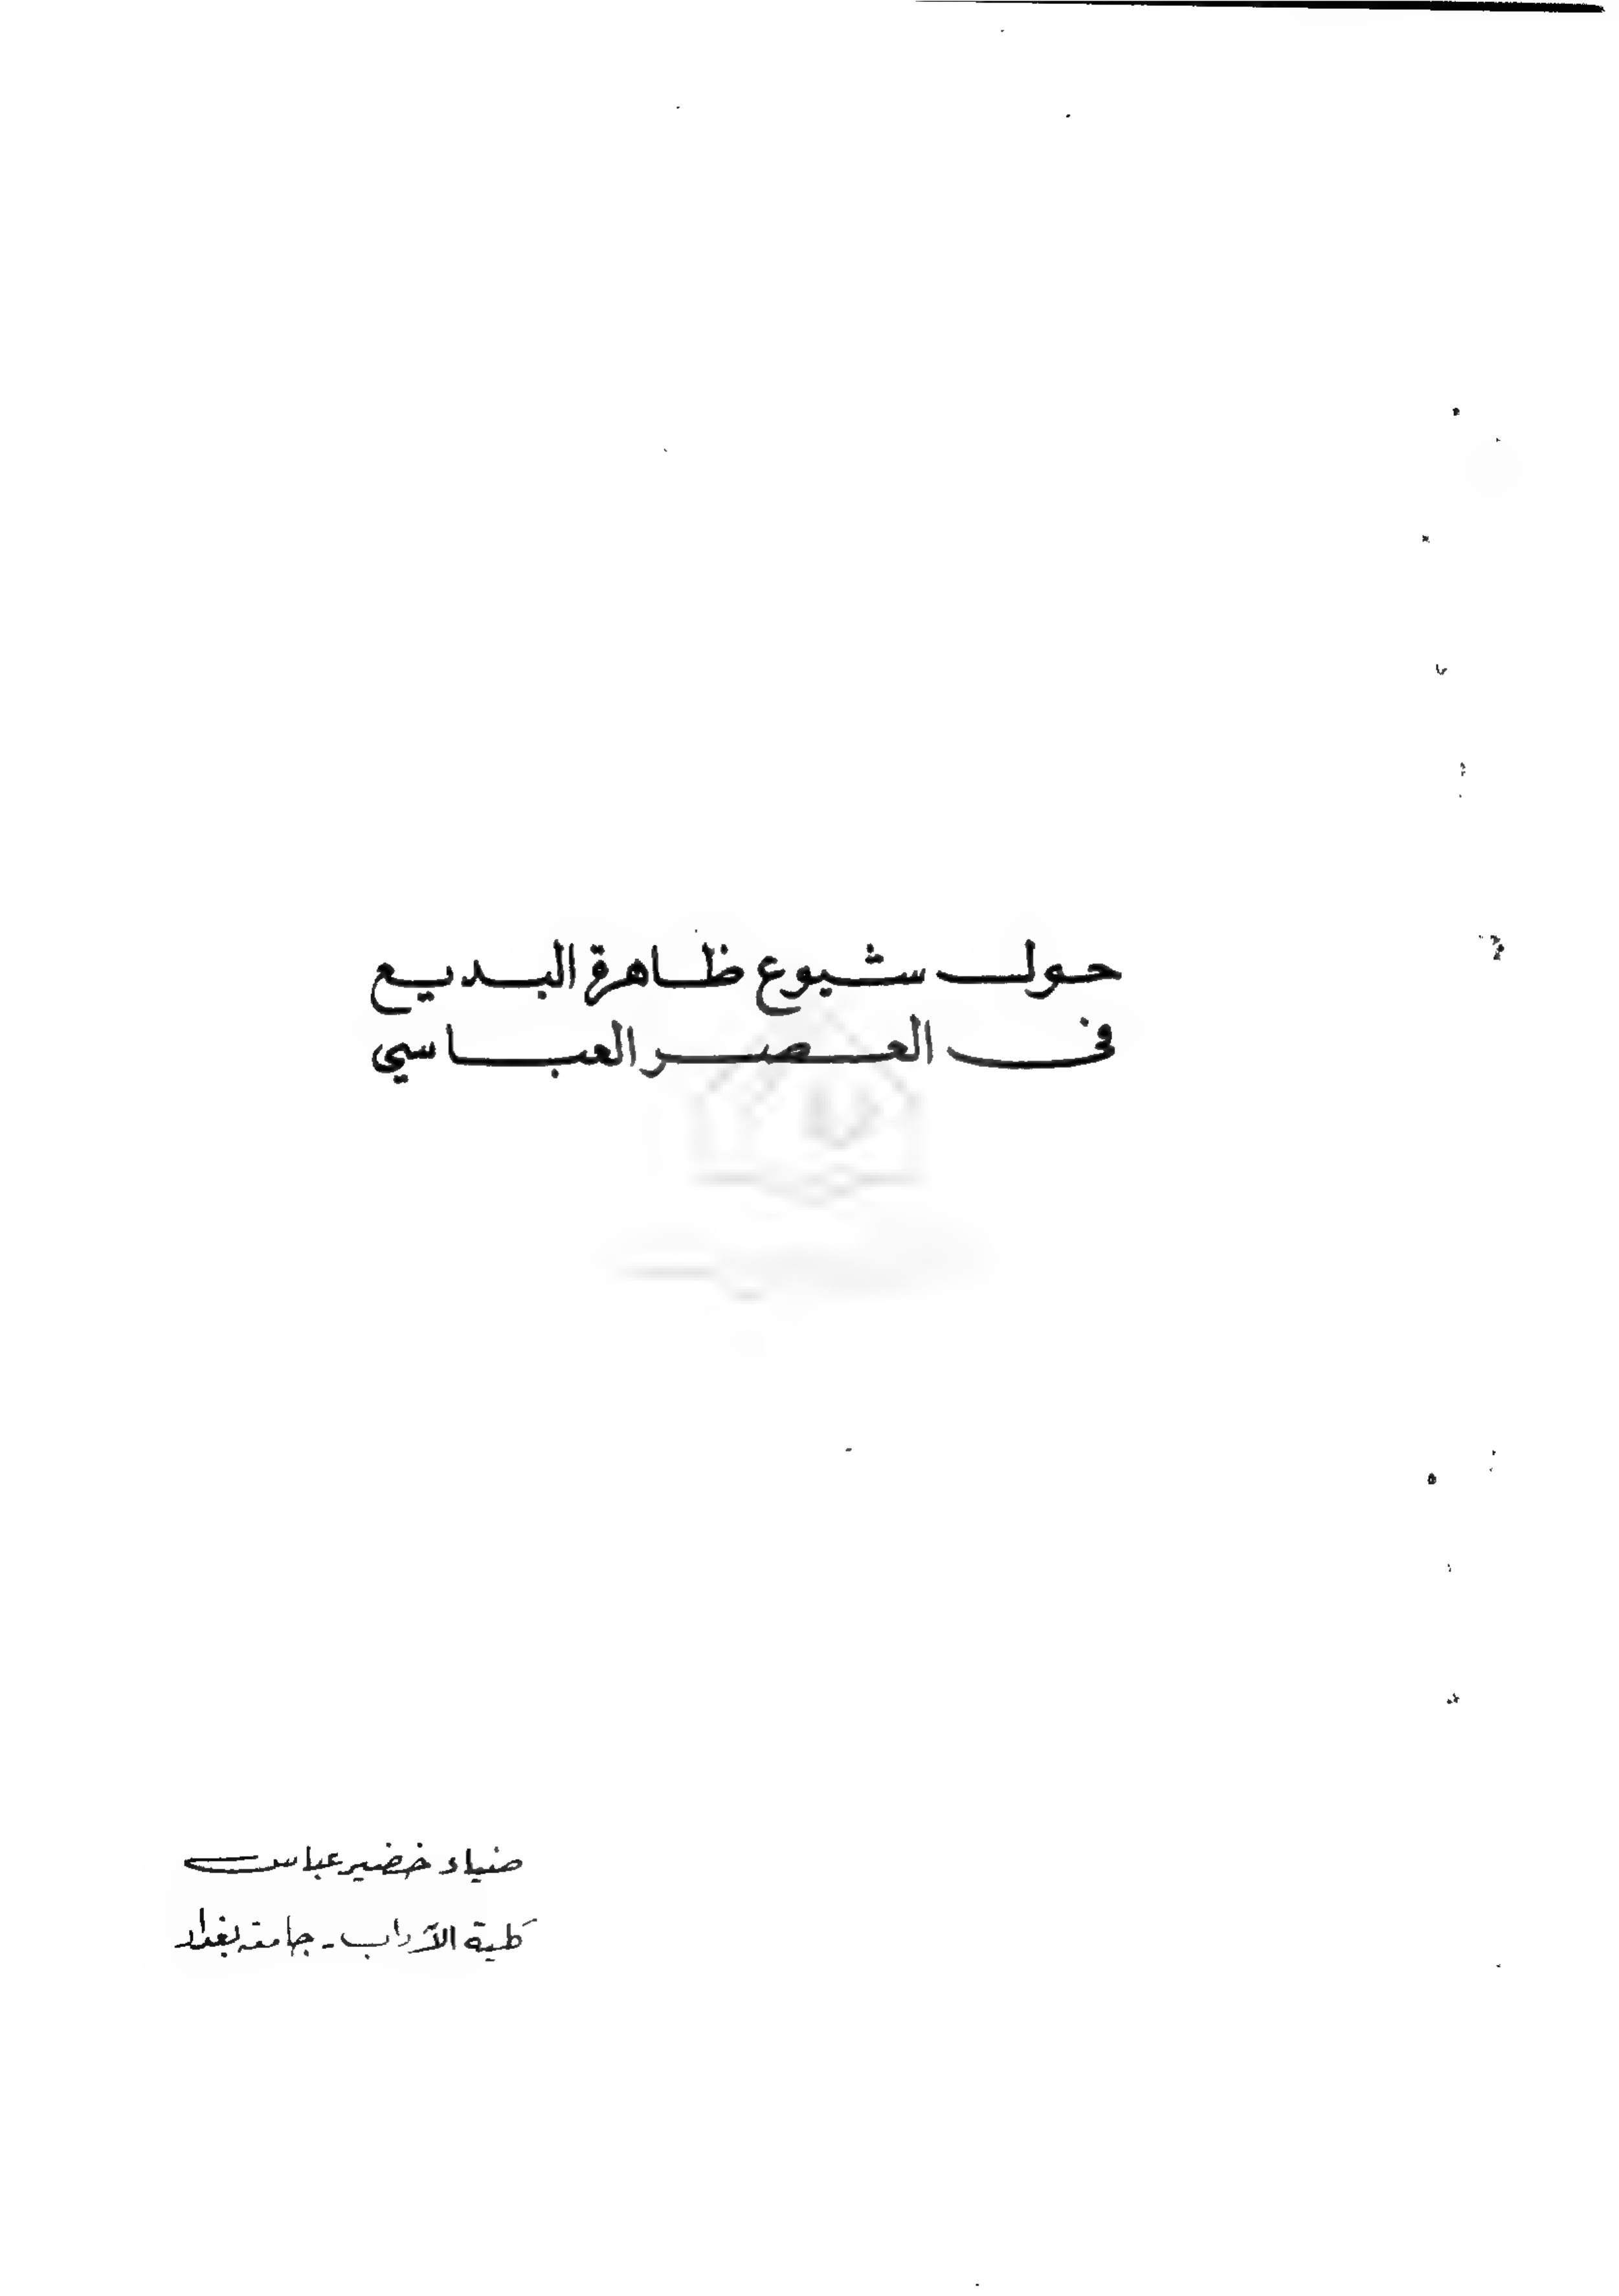 حول شيوع ظاهرة البديع
في العصر العباسي
ضياء خضير عباس
كلية الآداب - جامعة بغداد